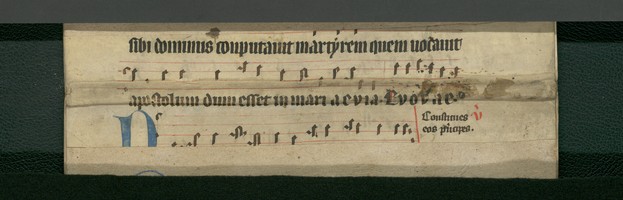 sibi dominus conputauit martyrem quem uocauit
apostolum dum esset in mari a e v i a. E v o v a e.
N
Constitues
eos prīcipes. v̄